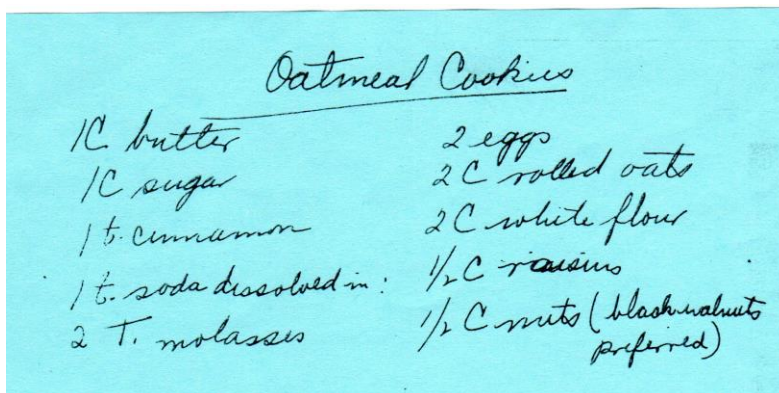 Oatmeal Cookies
1C. butter
1C sugar
1 t. cinnamon
1 t. soda dissolved in:
2 T. molasses
2 eggs
2 C rolled oats
2 C white flour
1/2 C raisins
1/2 C nuts (black walnuts
preferred)